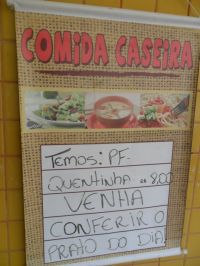 COMIDA CASEIRA
TEMOS: PF-
QUENTINHA R$ 8,00
VENHA
CONFERIR O
PRATO DO DIA